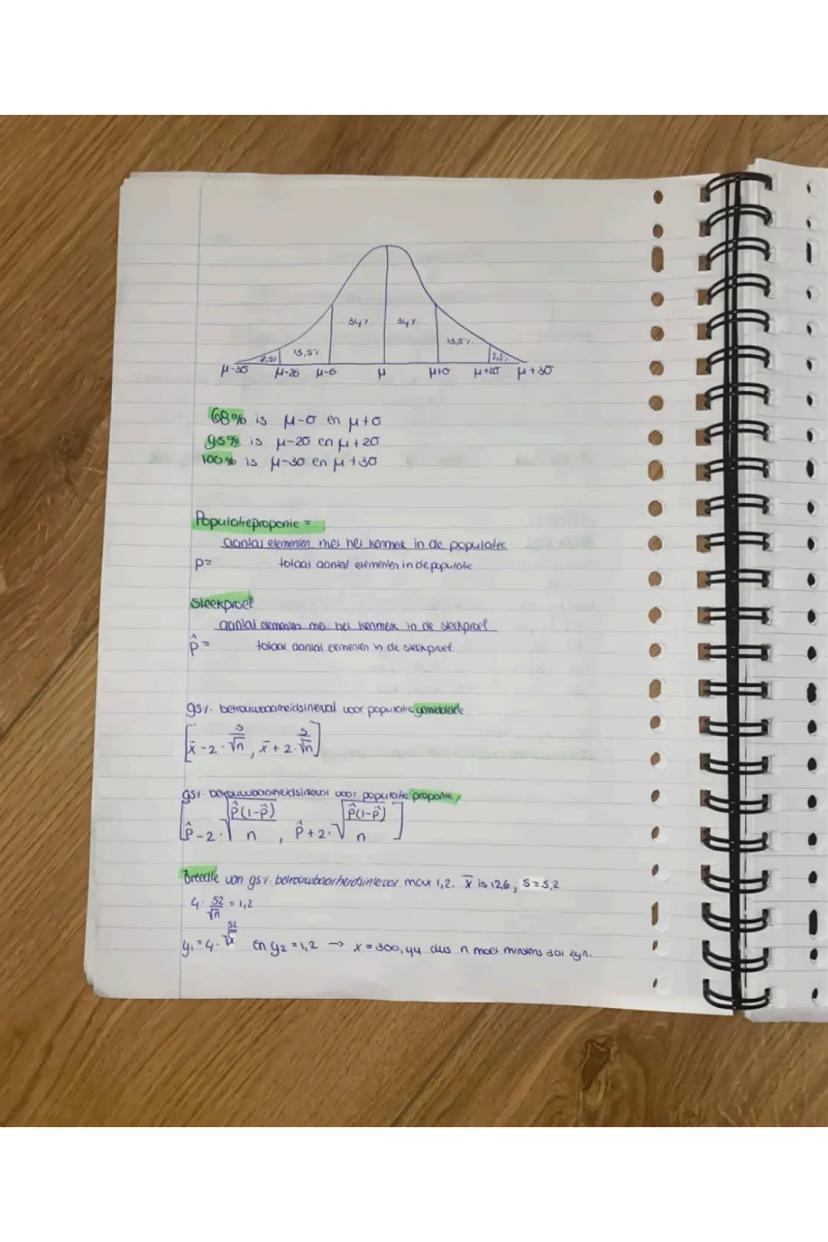 34% 34%
2,5% 13,5% 13,5% 2,5%
μ-3σ μ-2σ μ-σ μ μ+σ μ+2σ μ+3σ
68% is μ-σ en μ+σ
95% is μ-2σ en μ+2σ
100% is μ-3σ en μ+3σ
Populatieproportie =
aantal elementen met het kenmerk in de populatie
p= totaal aantal elementen in de populatie
Steekproef
aantal elementen met het kenmerk in de steekproef
p̂ = totaal aantal elementen in de steekproef.
95% betrouwbaarheidsinterval voor populatie gemiddelde
[x̄ - 2 · s/√n , x̄ + 2 · s/√n]
95% betrouwbaarheidsinterval voor populatie proportie,
[p̂ - 2 · √(p̂(1-p̂)/n) , p̂ + 2 · √(p̂(1-p̂)/n)]
Breedte van 95% betrouwbaarheidsinterval max 1,2. x̄ is 12,6, s = 5,2
4 · 5,2/√n = 1,2
y₁ = 4 · 5,2/√x en y₂ = 1,2 → x = 300,44 dus n moet minstens 301 zijn.